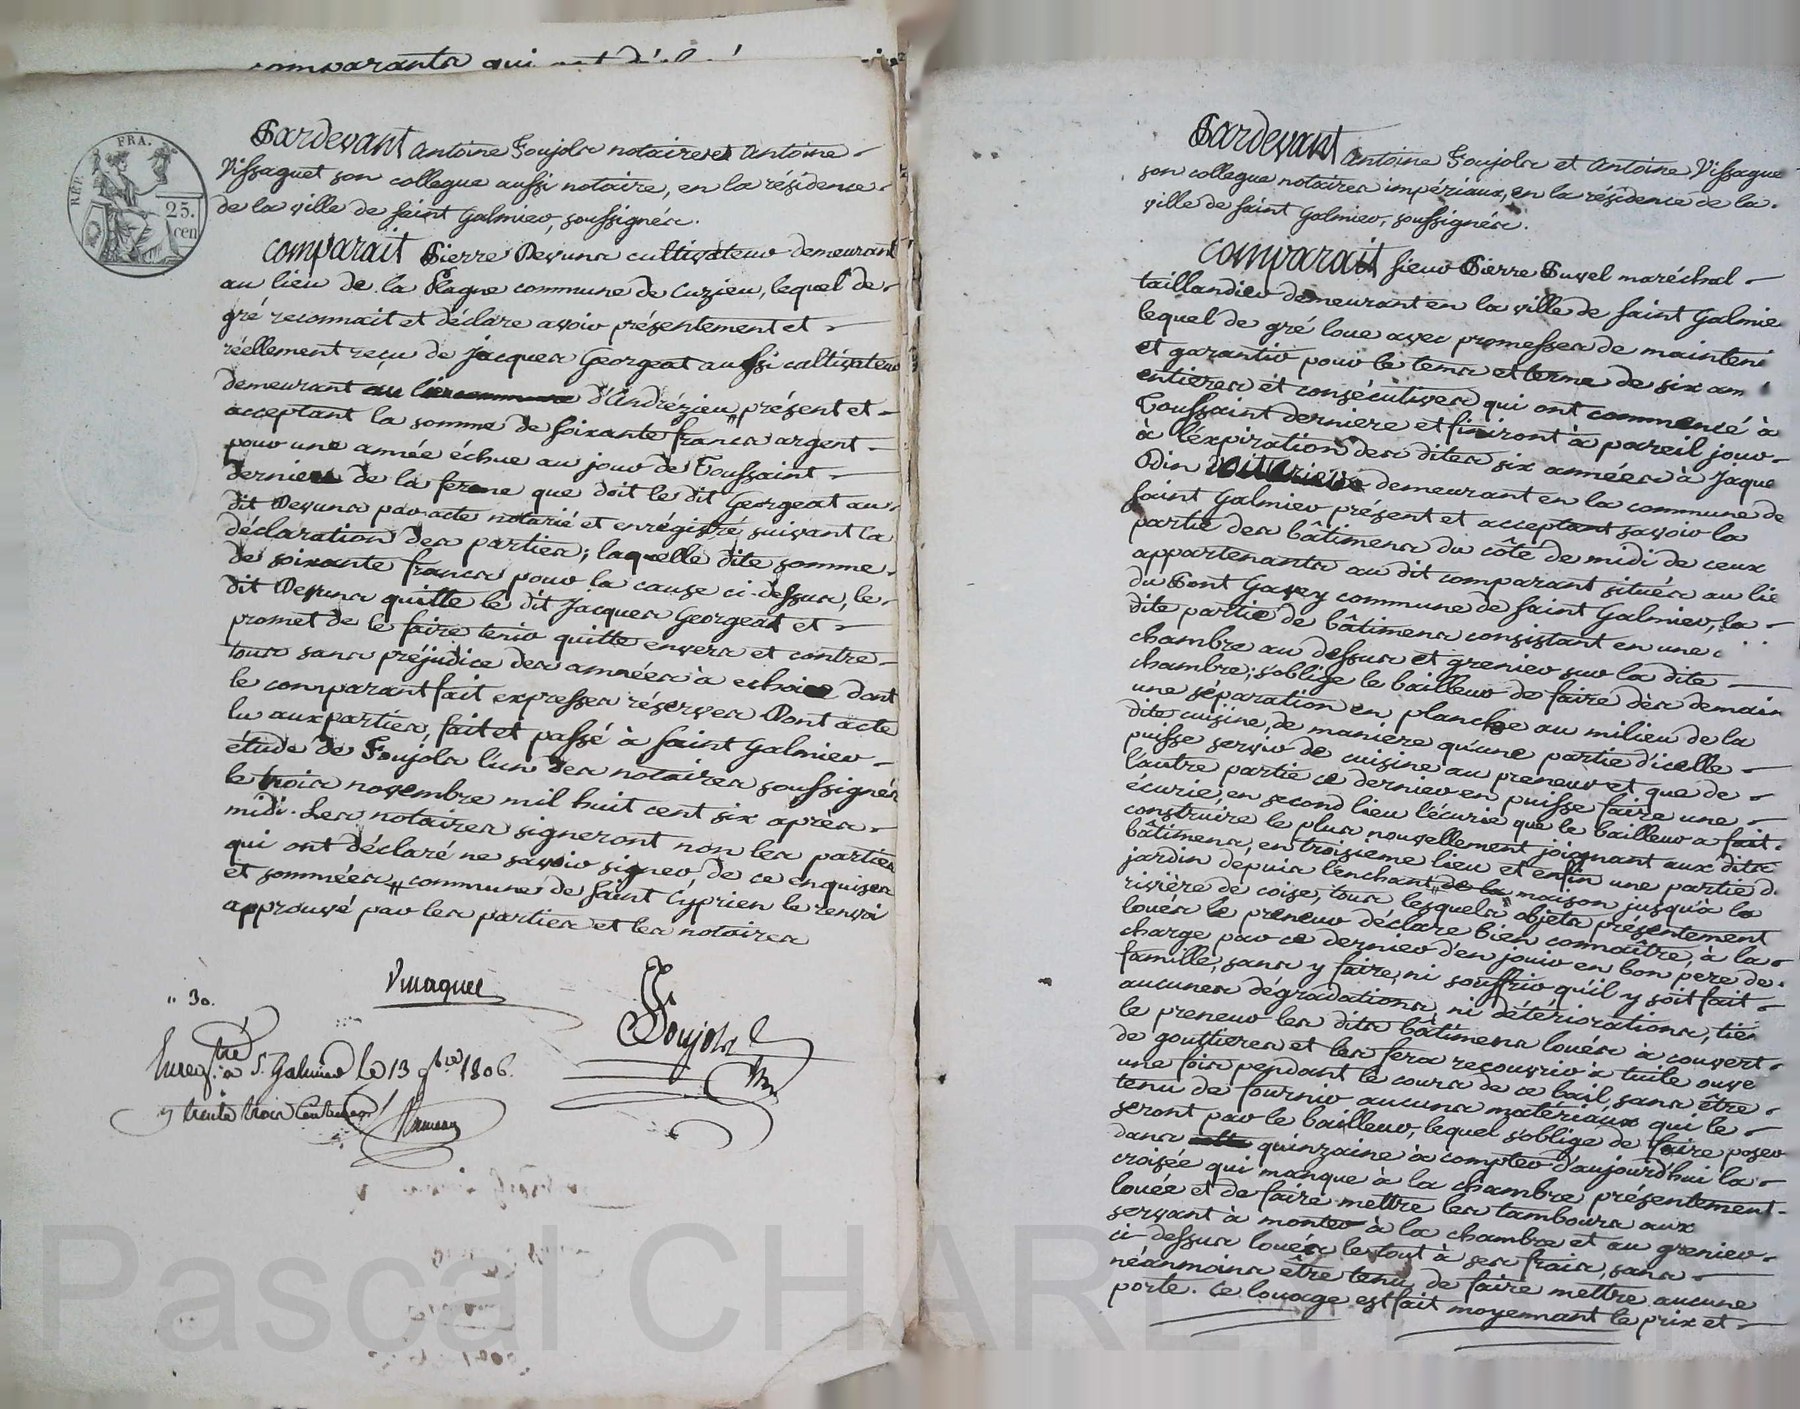 comparants qui ont déclaré
RÉP. FRA.
25.
cen
Pardevant Antoine Poujols notaire et Antoine
Vissaguet son collegue aussi notaire, en la résidence
de la ville de saint Galmier, soussignés.
comparait Pierre Devuns cultivateur demeurant
au lieu de la Plagne commune de Cuzieu, lequel de
gré reconnait et déclare avoir présentement et
réellement reçu de jacques Georgeat aussi cultivateur
demeurant d'Andrézieu " présent et
acceptant la somme de soixante francs argent
pour une année échue au jour de Toussaint
derniere de la ferme que doit le dit Georgeat au
dit Devuns par acte notarié et enrégistré, suivant la
déclaration des parties; laquelle dite somme
de soixante francs pour la cause ci-dessus, le
dit Devuns quitte le dit Jacques Georgeat et
promet de le faire tenir quitte envers et contre
tous sans préjudice des années à echoir dont
le comparant fait expresses réserves Dont acte
lu aux parties, fait et passé à saint Galmier
étude de Poujols l'un des notaires soussignés
le trois novembre mil huit cent six après
midi. Les notaires signeront non les parties
qui ont déclaré ne savoir signer de ce enquises
et sommées, " commune de saint Cyprien le renvoi
approuvé par les parties et les notaires
" 30.
Vissaguet
Poujols
Enregtré à St. Galmier le 13 9bre 1806.
trente trois centimes
Pardevant Antoine Poujols et Antoine Vissague
son collegue notaires impériaux, en la résidence de la
ville de saint Galmier, soussignés.
comparait sieur Pierre Buvel maréchal
taillandier demeurant en la ville de saint Galmie
lequel de gré loue avec promesses de mainteni
et garantir pour le tems et terme de six ann
entieres et consécutives qui ont commencé à
Toussaint derniere et finiront à pareil jour
à l'éxpiration des dites six années à Jaque
Odin demeurant en la commune de
saint Galmier présent et acceptant savoir la
partie des bâtimens du côté de midi de ceux
appartenants au dit comparant situés au lie
du Pont Gavey commune de saint Galmier, la
dite partie de bâtimens consistant en une
chambre au dessus et grenier sur la dite
chambre; s'oblige le bailleur de faire dès demain
une séparation en planche au milieu de la
dite cuisine, de maniere qu'une partie d'icelle
puisse servir de cuisine au preneur et que de
l'autre partie ce dernier en puisse faire une
écurie; en second lieu l'écurie que le bailleur a fait
construire le plus nouvellement joignant aux dits
bâtimens, en troisieme lieu et enfin une partie d
jardin depuis l'enchant " de la maison jusqu'à la
riviere de coise, tous lesquels objets présentement
loués le preneur déclare bien connaître, à la
charge par ce dernier d'en jouir en bon pere de
famille, sans y faire, ni souffrir qu'il y soit fait
aucunes dégradations, ni détériorations, tien
le preneur les dits bâtimens loués à couvert
de gouttieres et les fera recouvrir à tuile ouve
une fois pendant le cours de ce bail, sans être
tenu de fournir aucuns matériaux qui le
seront par le bailleur, lequel s'oblige de faire poser
dans quinzaine à compter d'aujourd'hui la
croisée qui manque à la chambre présentement
louée et de faire mettre les tambours aux
servant à monter à la chambre et au grenier
ci-dessus loués le tout à ses frais, sans
néanmoins être tenu de faire mettre aucune
porte. Ce louage est fait moyennant le prix et